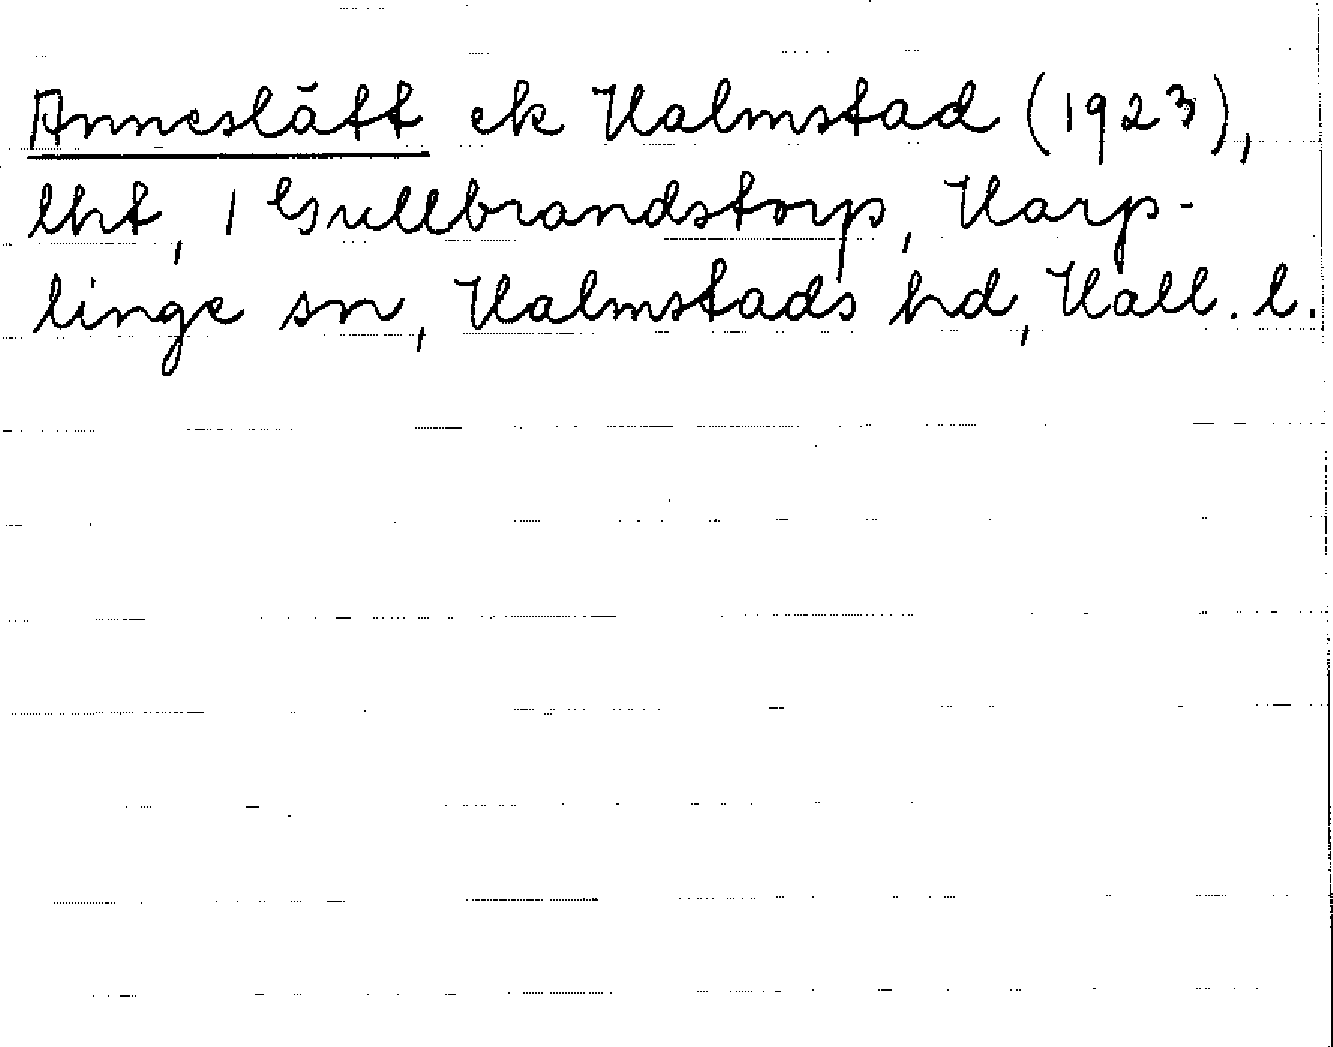 Anneslätt ek Halmstad (1923),
lht, 1 Gullbrandstorp, Harp-
linge sn, Halmstads hd, Hall. l.